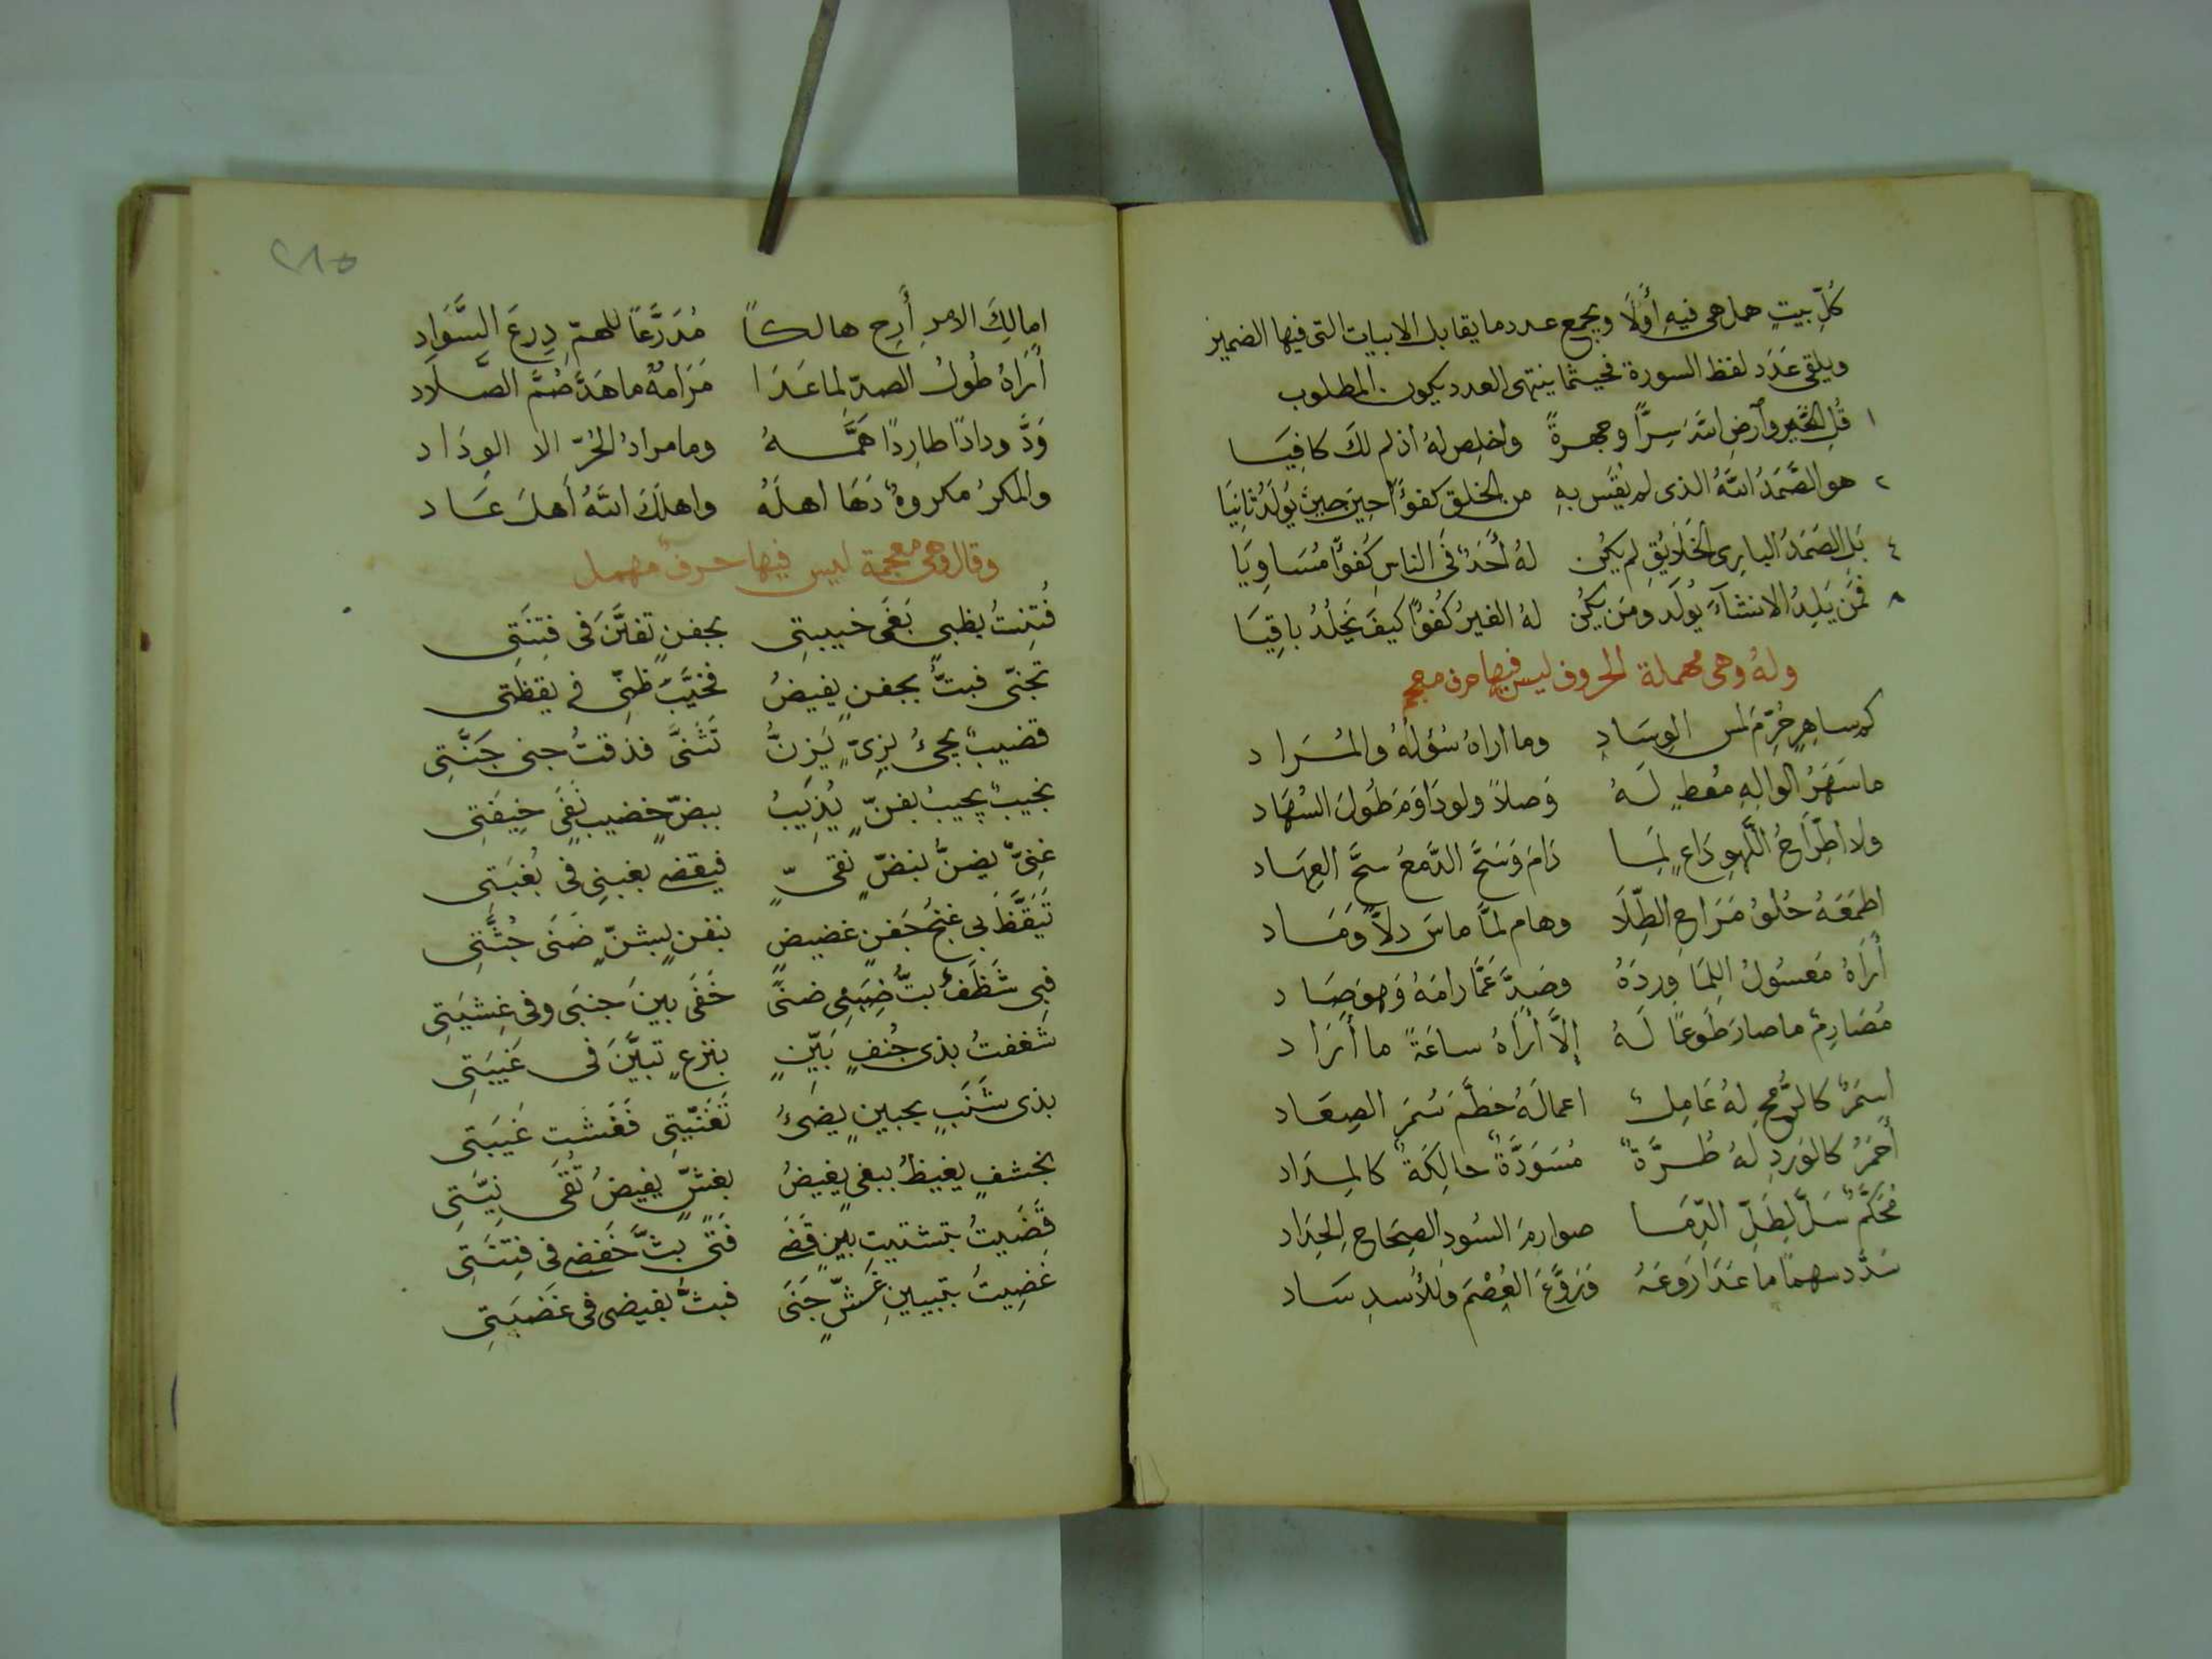 كُلِّ بيتٍ هل هى فيهِ أَوْلَا ويجمع عدد ما يقابل الابيات التى فيها الضمير
ويلقى عَدَد لفظ السورة فحيثما ينتهى العدد يكون المطلوب
١ قُلِ الخَيرَ وٱرضِ اللهَ سِرًّا وجهرةً واخلِص لهُ اذ لم لكَ كافِيَا
٢ هو الصَّمَدُ اللهُ الذى لم يُقَس بهِ من الخلق كفؤًا حِينَ حِينَ يُولَدُ ثانِيَا
٤ بَلِ الصَمَدُ البارِى الخَلَايُقِ لم يكُن لهُ أَحَدٌ فى الناسِ كُفوًا مُسَاوِيَا
٨ فَمَن يَلِدُ الانشآءَ يُولَد ومَن يكُن لهُ الغيرُ كُفوًا كيفَ يَخلُدُ باقِيَا
ولهُ وهى مهملة الحروف ليس فيها حرف معجم
كم ساهِرٍ حُرِّمَ لمس الوِسَادِ وما اراهُ سُؤلَهُ والمُرَاد
ما سَهَرُ الوالِهِ مُعطٍ لَهُ وَصلًا ولو دَاوَمَ طُولَ السُهَاد
ولا اطِّرَاحُ اللَّهوِ دَاعٍ لِمَا دَامَ وَسَحَّ الدَّمعُ سحَّ العِهَاد
اطمَعَهُ حُلوُ مَرَاحِ الطِّلَا وهام لمَّا ماسَ دلًّا وَمَاد
أَرَاهُ مَعسُولُ اللِمَا وِردَهُ وصَدَّ عَمَّا رامَهُ وَهوَ صَاد
مُصَارِمٌ ما صارَ طَوعًا لَهُ إلَّا أَرَاهُ ساعَةً ما أَرَاد
اسمَرُ كالرُّمحِ لهُ عَامِلٌ اعمالَهُ حَطَّمَ سُمرَ الصِعَاد
أَحمَرُ كالوَردِ لهُ طُرَّةٌ مُسوَدَّةٌ حالِكَةٌ كالمِدَاد
مُحَكَّمٌ سَلَّ لِطَلِّ الدِّمَا صوارمَ السُود الصِحَاحِ الحِدَاد
سَدَّد سهمًا ما عَدَا رَوعَهُ وَرَوَّعَ العُصْمَ وَللأُسدِ سَاد
امالِكَ الامرِ أَرِح هالكًا مُدَرَّعًا للهمِّ دِرعَ السَّوَادِ
أَرَاهُ طُولُ الصدِّ لما عَدَا مَرَامَهُ ما هَدَّ صُمَّ الصِّلَاد
وَدَّ ودادًا طارِدًا هَمَّهُ وما مرادُ الحُرِّ الا الوِدَاد
والمَكرُ مكروهٌ دَهَا اهلَهُ واهلَكَ اللهُ أَهلَ عَاد
وقال وهى معجمة ليس فيها حرفٌ مهمل
فُتِنتُ بظبىٍ بَغَى خيبتِى بجفنٍ تفنَّنَ فى فِتنَتِى
تجنّى فبتُّ بجفنٍ يفيضُ فخيَّبَ ظنّى فى يقظتى
قضيبٌ يجىُ بِزِىٍّ يَزِينُ تَثَنَّى فذقتُ جنى جَنَّتِى
نجيبٌ يجيبُ بفنٍّ يُذِيبُ ببضٍّ خضيبٍ نَفَى خِيفَتِى
غنِىٌّ يضنُّ بنضٍّ نقىٍّ فيقضى بغبنِى فى بُغيَتِى
تَيَقَّظَ بى غنجُ جَفنٍ غضيضٍ بفنٍ يشنُّ ضَنَى جُثَّتِى
فبى شَظَفٌ بتُّ ضَيفِى ضنىً خَفَى بينَ جنبَى وفى غِشيَتِى
شغفتُ بذى جُنُفٍ بَيِّنٍ بنزعٍ تبيَّنَ فى غَيبَتِى
بذى شَنَبٍ بجبينٍ يضىُ تَغَنِّيَتِى فَغَشَت غَيبَتى
بخشفٍ يغيظُ ببغىٍ يفيضُ بغشٍّ يغيضُ تُقَى نِيَّتِى
قَضَيتُ بتشتيتِ بينٍ قَضَى فَتًى بثَّ خَفضِى فى فِتنَتِى
غَضِيتُ بتبيينِ غشٍّ جَنَى فبثَّ بغيضى فى غَضبَتِى